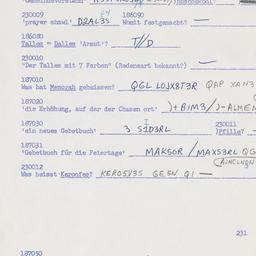 230009 186090
'prayer shawl' D2AL3S Womit festgemacht?
186080
Talles = Dalles 'Armut'? T//D
230010
"Der Talles mit 7 Farben" (Redensart bekannt?) —
187010
Was hat Menorah gebuissen? QGL LOJX8F3R QAP XAN3
187020
'die Erhöhung, auf der der Chasen ort' )+BIM3/)-ALMEM
187030 230011
'ein neues Gebetbuch' 3 SID3RL )Pfille? —
187031
'Gebetbuch für die Feiertage' MAKSOR / MAXS3RL QG
230012
Was heisst Keroofes? KEROSV3S GESN QI —
231
187050